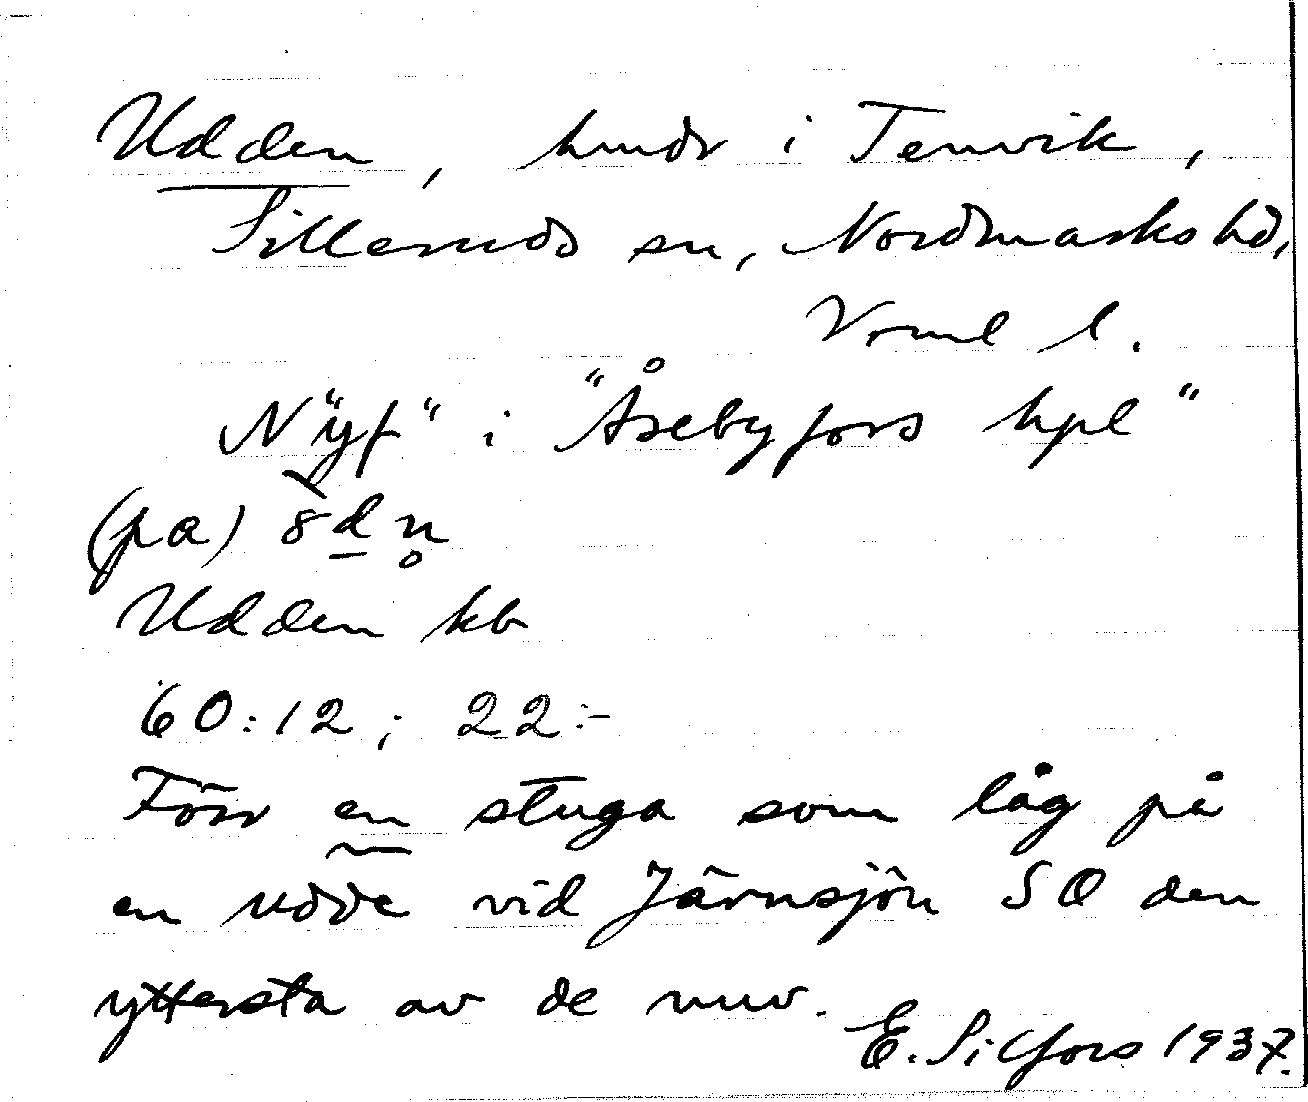 Udden, hmdr i Tenvik,
Silleruds sn, Nordmarks hd,
Vrml l.
N"yf" i "Åsebyfors hpl"
(pa)
Udden kb
60:12; 22:-
Förr en stuga som låg på
en udde vid Järnsjön SO den
yttersta av de nuv.
E. Silfors 1937.